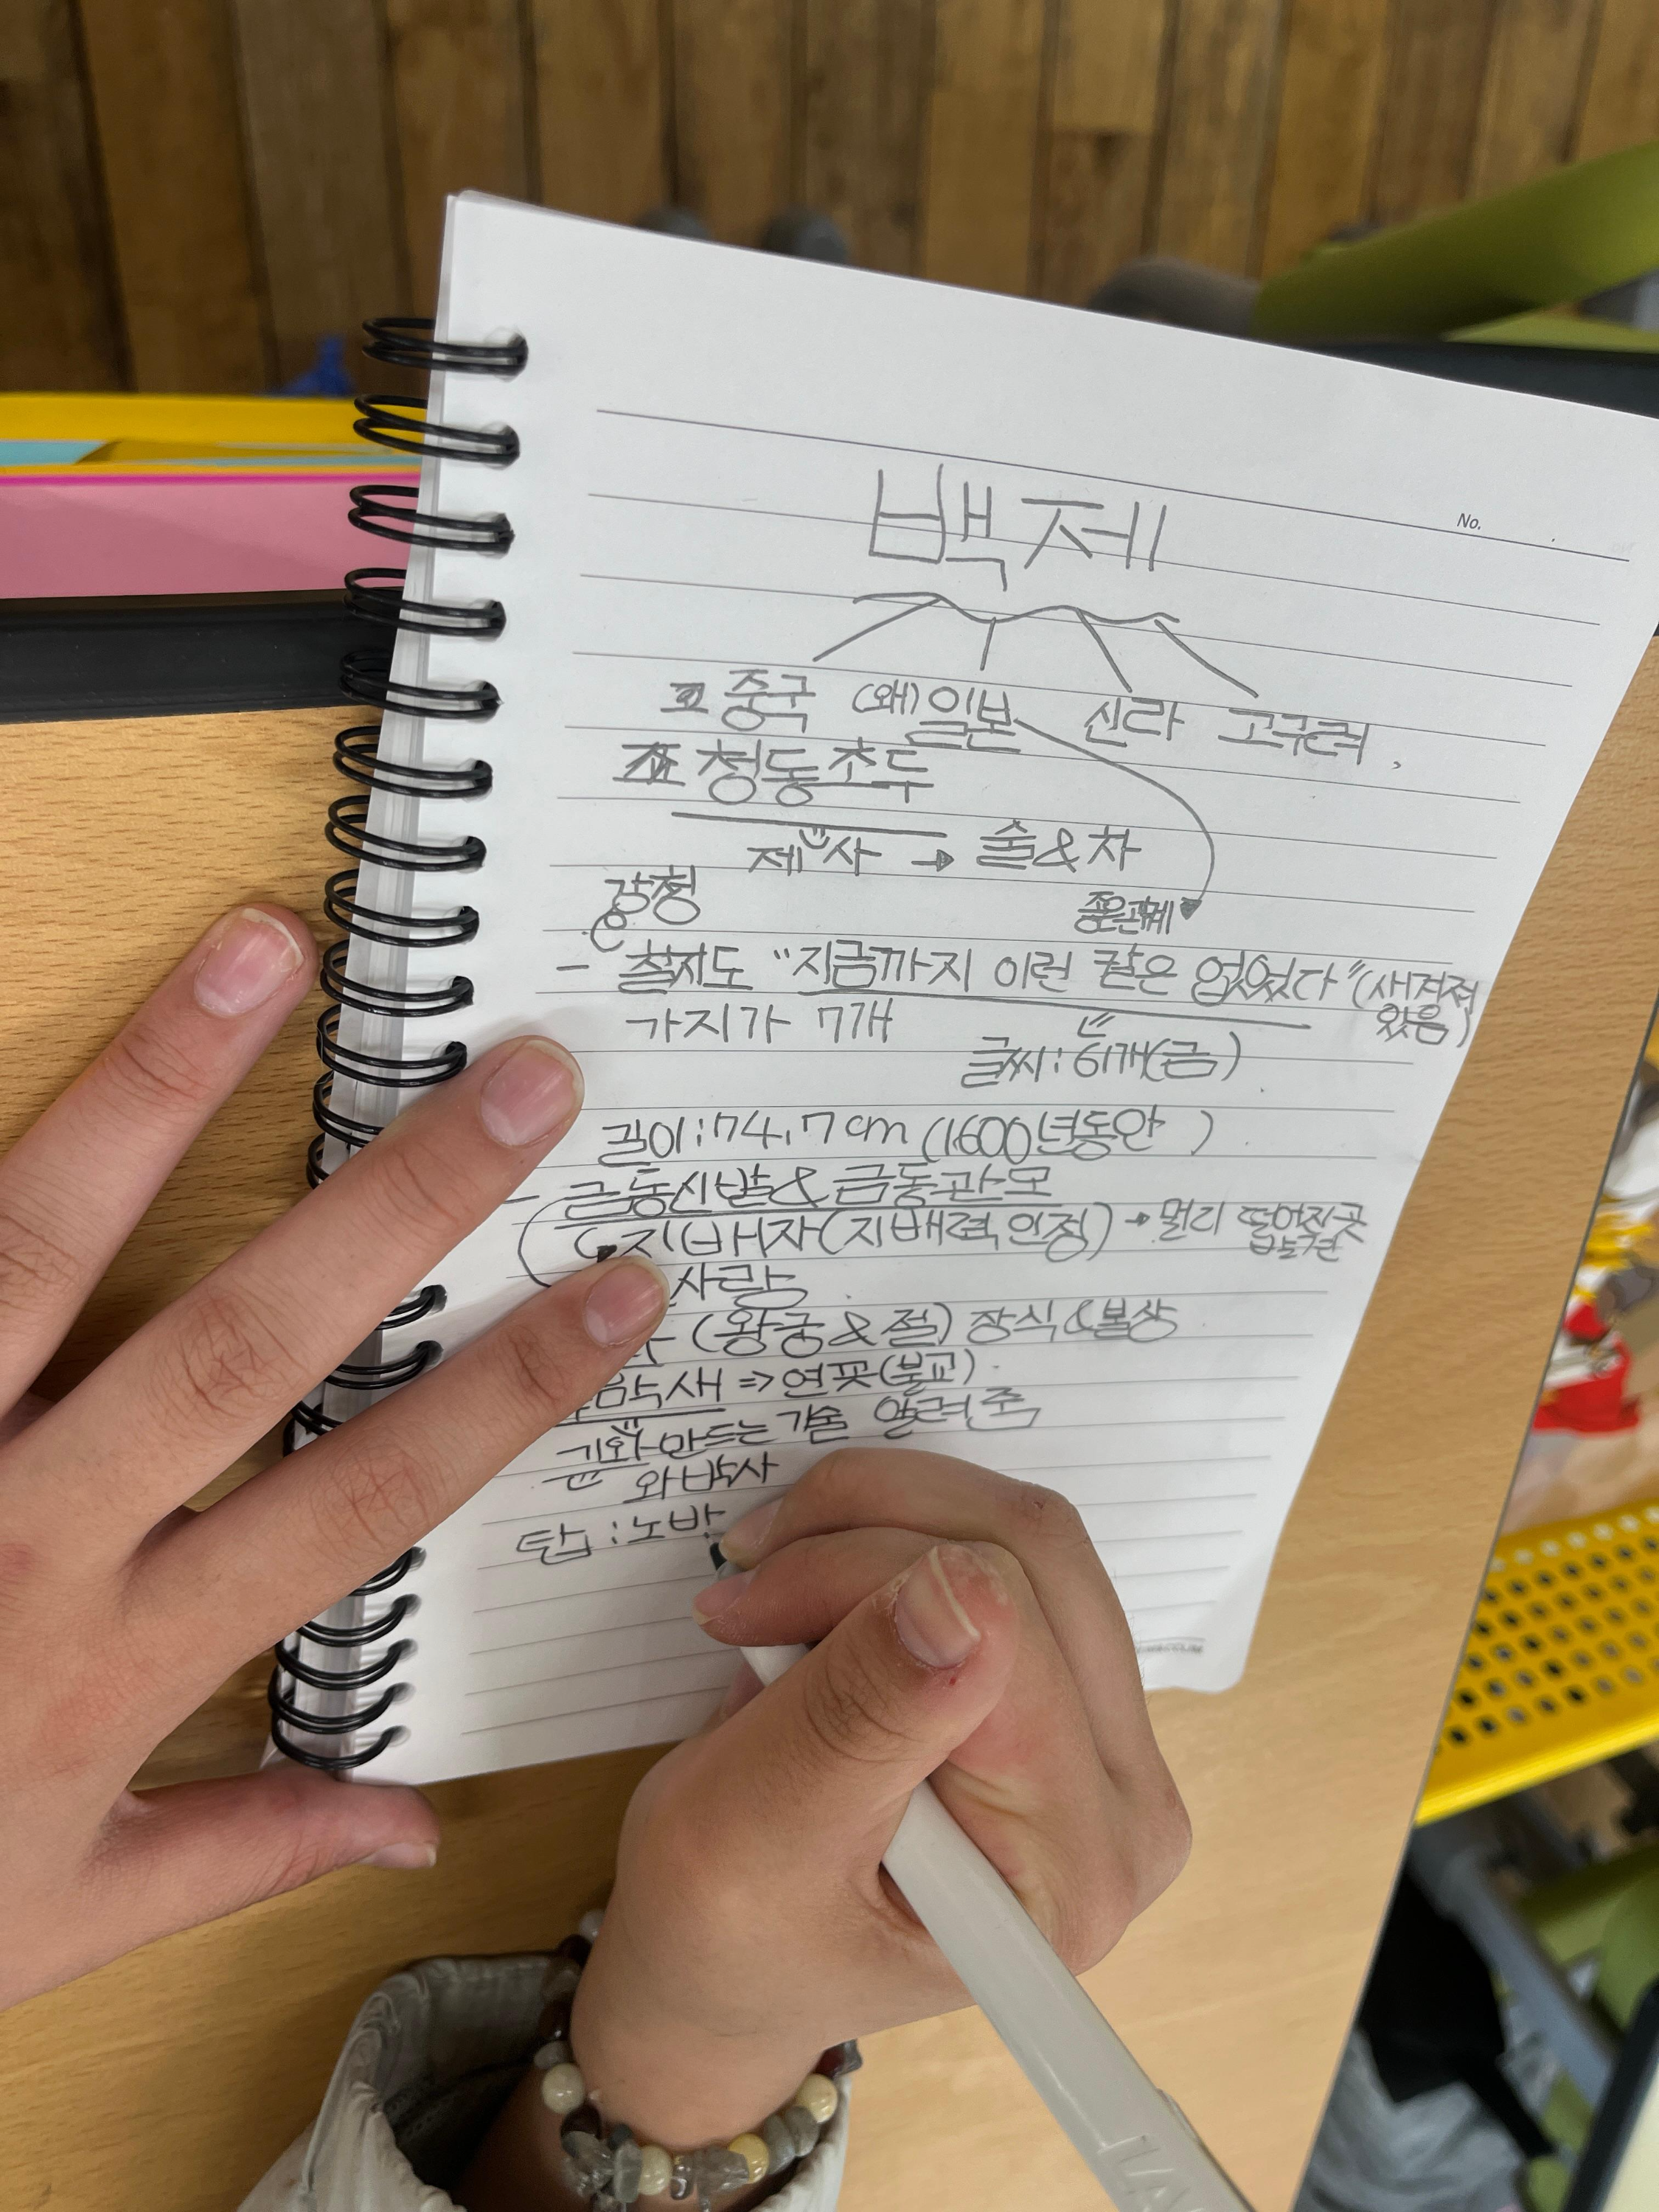 No.
백제
중국 (왜)일본 신라 고구려
청동초두
제사 → 술&차
좋은관계
- 칠지도 "지금까지 이런 칼은 없었다" (새겨져
있음)
가지가 7개
글씨: 61개(금)
길이: 74.7cm (1600년동안)
- 금동신발&금동관모
지배자(지배력 인정) → 멀리 떨어진곳
사람
(왕궁&절) 장식&불상
막새 => 연꽃(불교)
기와 만드는 기술 알려 줌
와박사
탑: 노반